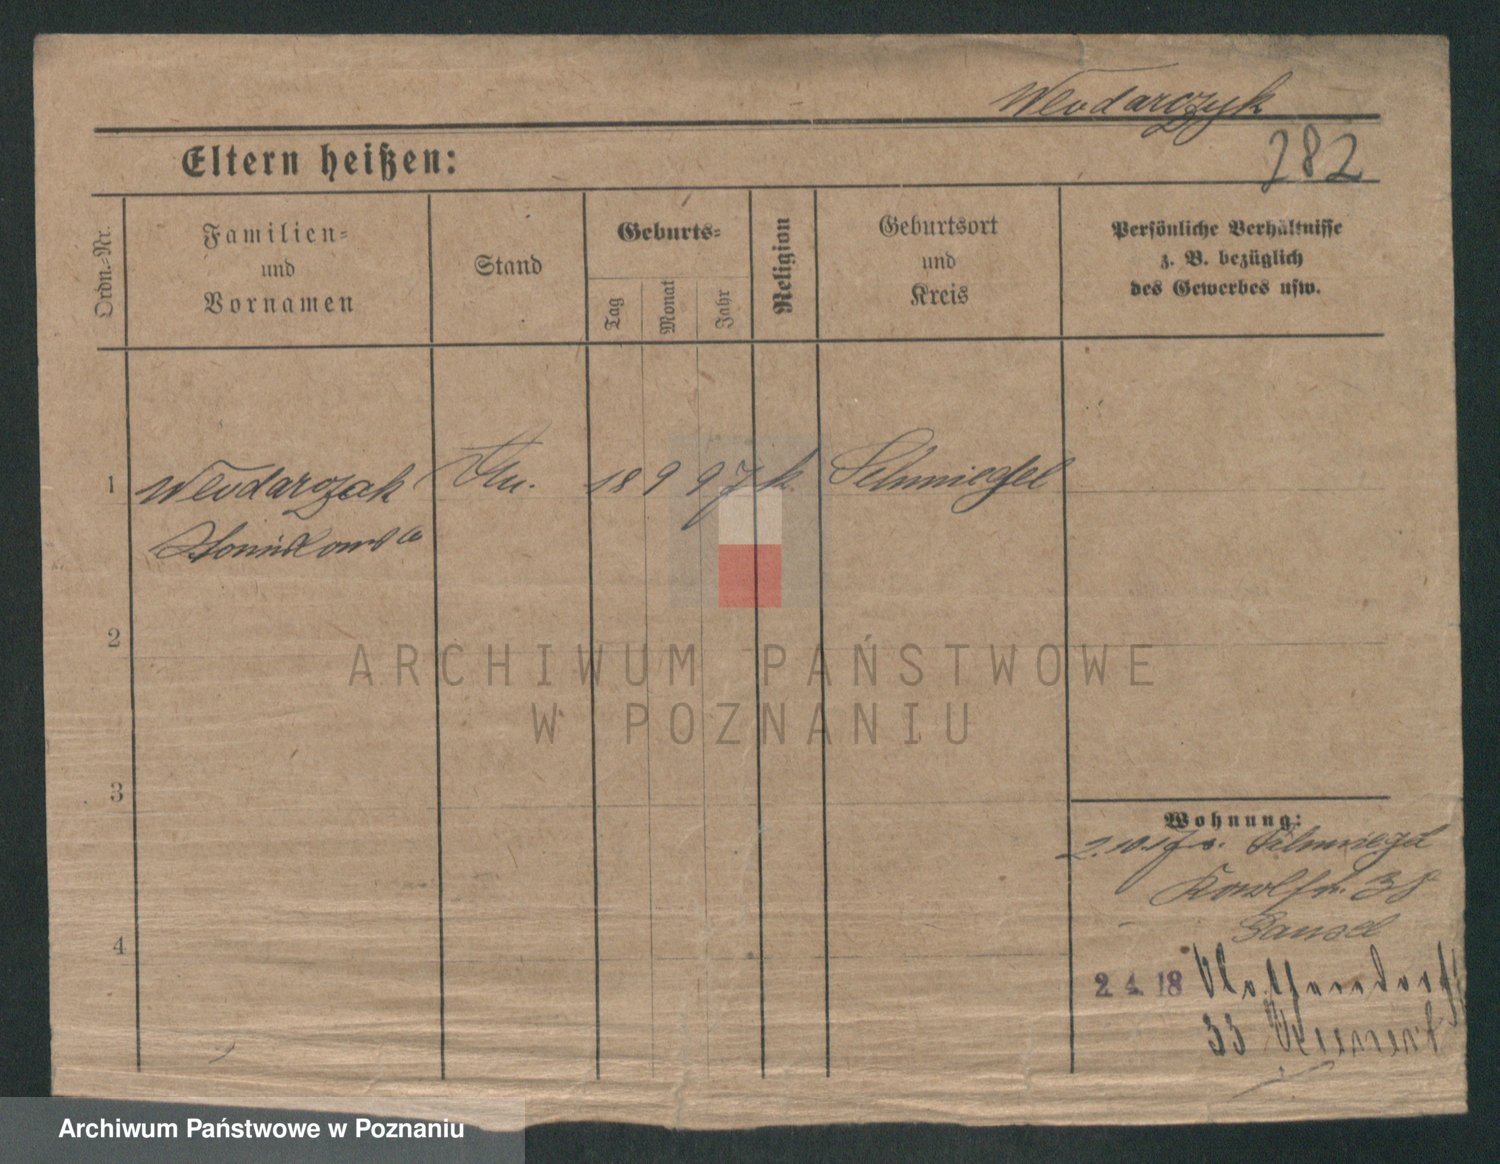 Wlodarczyk
282
Eltern heißen:
Ordn.-Nr.
Familien-
und
Vornamen
Stand
Geburts-
Tag
Monat
Jahr
Religion
Geburtsort
und
Kreis
Persönliche Verhältnisse
z. B. bezüglich
des Gewerbes usw.
1 Wlodarczak 18 9 97 k. Schmiegel
Stanislawa
2
3
4
Wohnung:
2.10.17 v. Schmiegel
38
2. 4. 18
33
ARCHIWUM PAŃSTWOWE
W POZNANIU
Archiwum Państwowe w Poznaniu